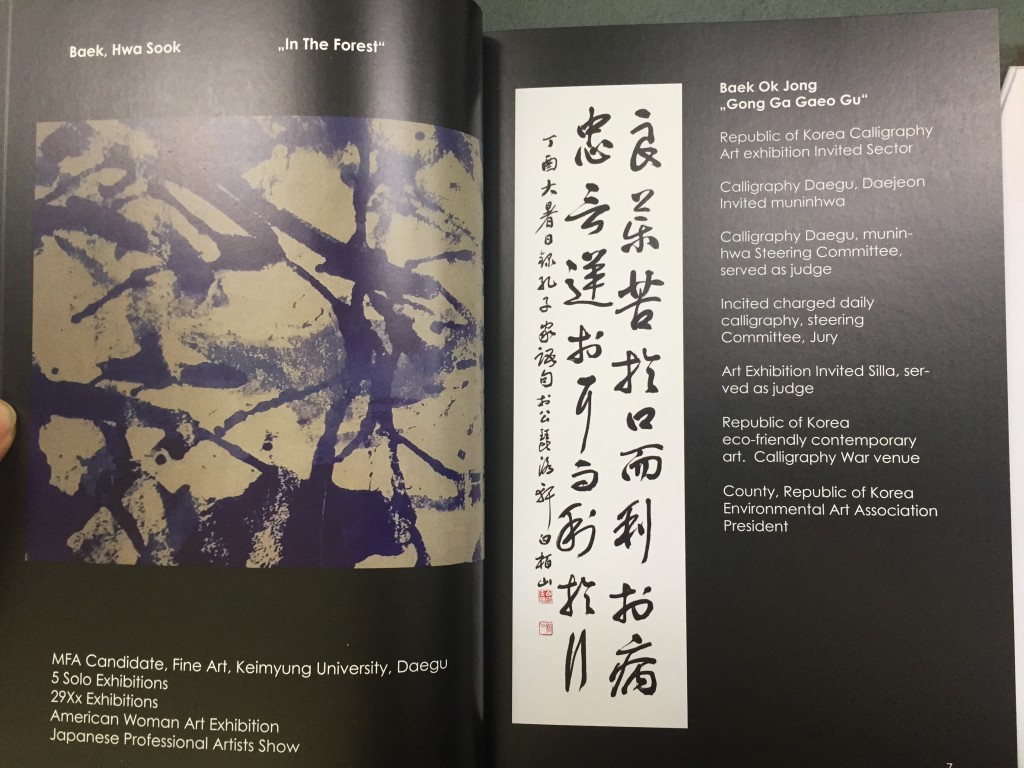 Baek, Hwa Sook
„In The Forest“
MFA Candidate, Fine Art, Keimyung University, Daegu
5 Solo Exhibitions
29Xx Exhibitions
American Woman Art Exhibition
Japanese Professional Artists Show
良藥苦於口而利於病
忠言逆於耳而利於行
丁酉大暑日錄孔子家語句於 軒 白栢山
Baek Ok Jong
„Gong Ga Gaeo Gu“
Republic of Korea Calligraphy
Art exhibition Invited Sector
Calligraphy Daegu, Daejeon
Invited muninhwa
Calligraphy Daegu, munin-
hwa Steering Committee,
served as judge
Incited charged daily
calligraphy, steering
Committee, Jury
Art Exhibition Invited Silla, ser-
ved as judge
Republic of Korea
eco-friendly contemporary
art. Calligraphy War venue
County, Republic of Korea
Environmental Art Association
President
7